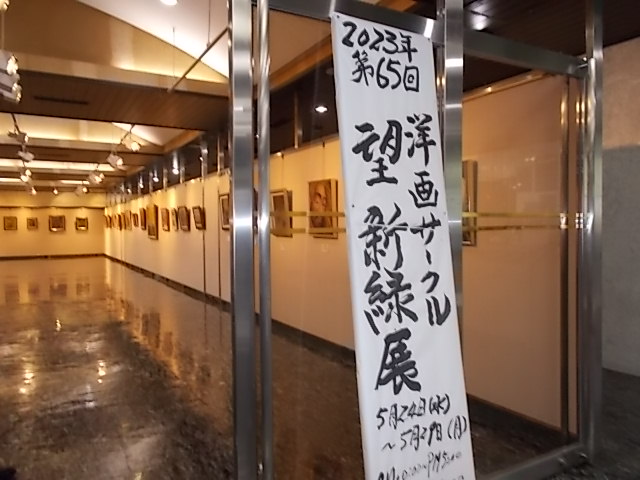 2023年
第65回
洋画サークル
望 新緑展
5月24日(水)
～5月29日(月)